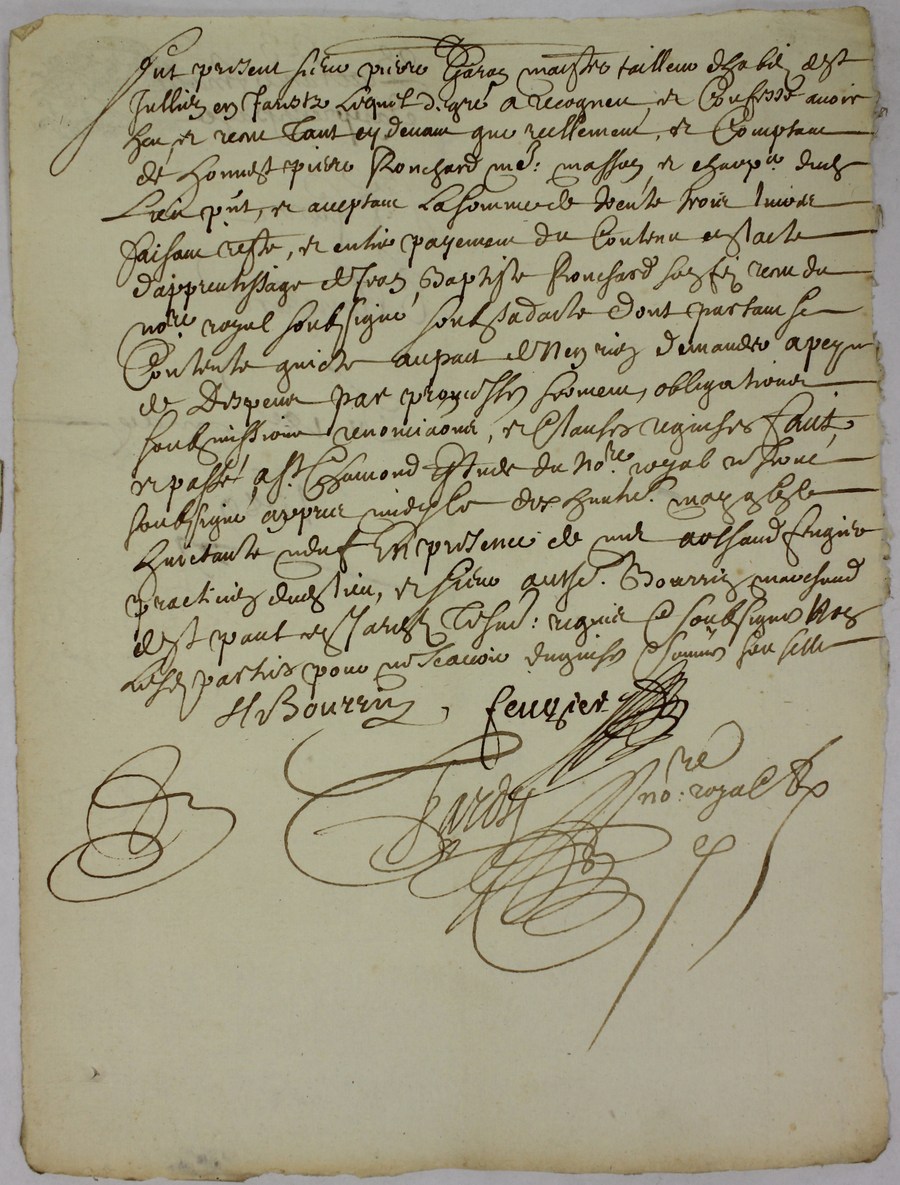 fut present sieur pierre Garan maistre tailleur dhabis de st
Jullien en Jaretz Lequel de gré a recogneu, et Confessé avoir
heu, et receu tant cy devant que reellement, et Comptant
de Honneste pierre Ronchard me: masson, et charp.r dudt
Lieu pnt, et acceptant La somme de trente trois livres
faisant reste, et entier payement du Contenu en l'acte
d'apprentissage de Jean Baptiste Ronchard son fil receu du
nore royal soubsigné soubs sa datte dont partant se
Contente quicte au pact de n'en rien demander a peyne
de Despens par promesses serment, obligations
soubmissions renonciaons, et Clauses requises fait,
et passé, a St. Chamond Estude du Nore. royal
soubsigné appres midy le dix huitie. may 
Huictante neuf En presence de me arthaud feugier
practicien dudt Lieu, et sieur anthe. Bourrin marchand
de st paul en Jaretz Tesms: requis & soubsignes Non
Lesd parties pour ne scavoir enquises & sommées seu selle
H Bourrin, feugier
Jardy no:re royal